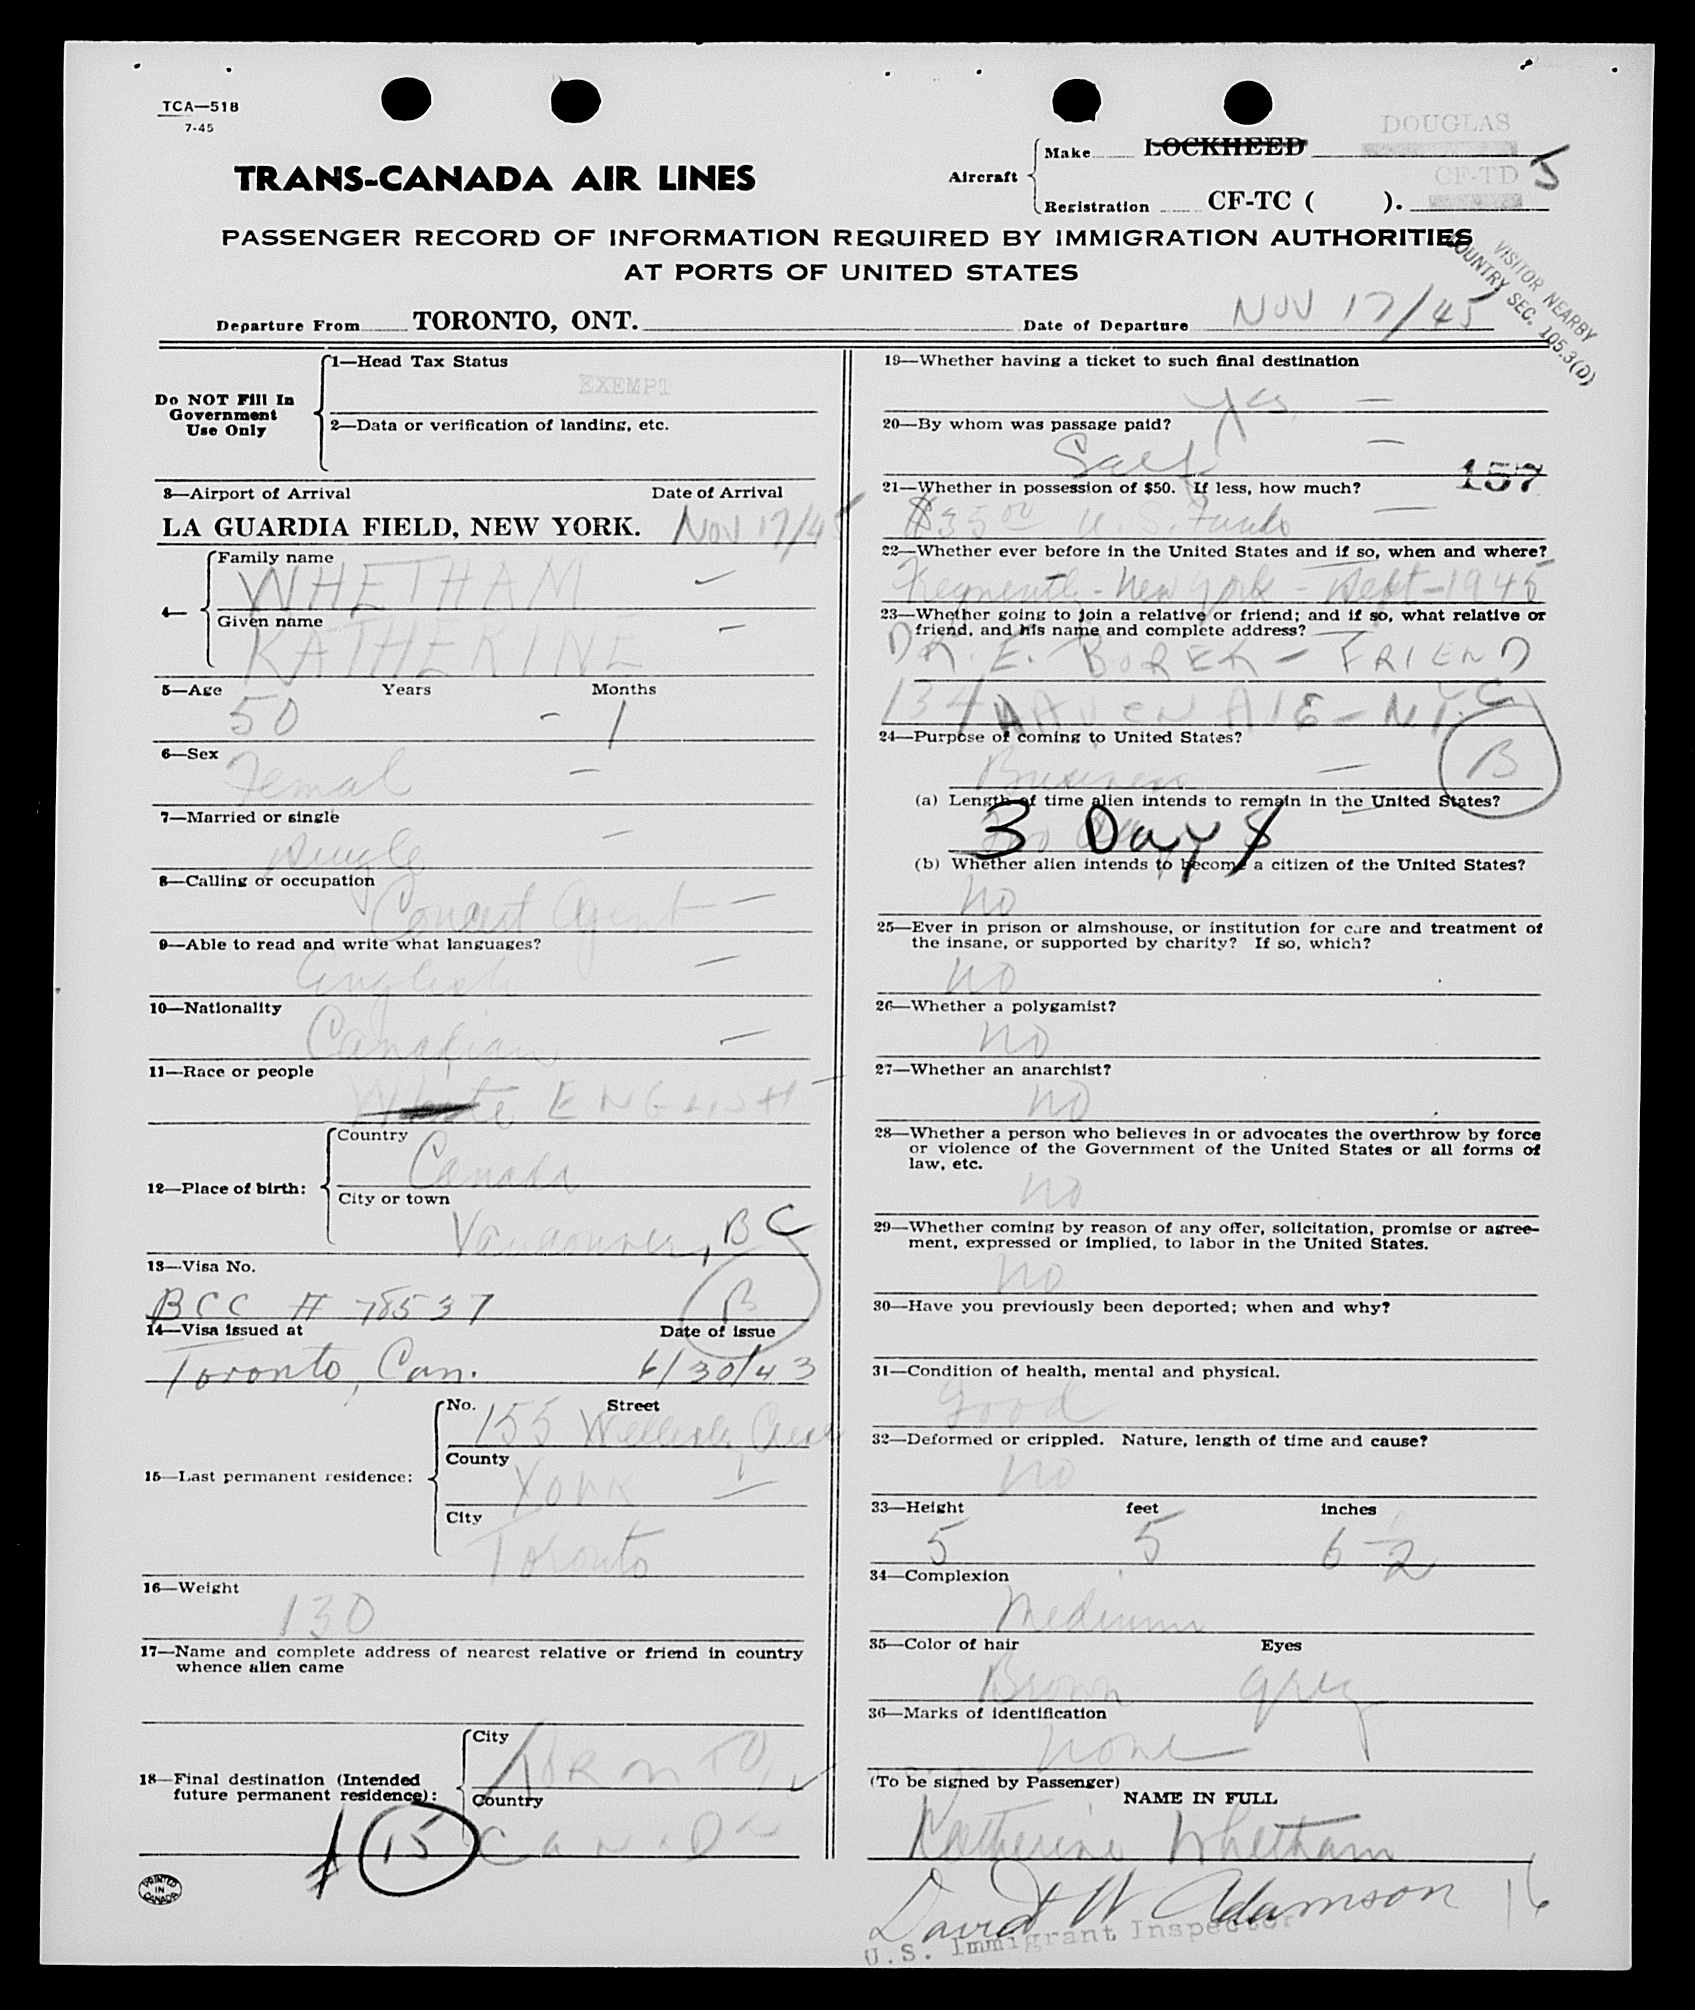 TCA—518
7-45
TRANS-CANADA AIR LINES
Aircraft
Make LOCKHEED DOUGLAS
Registration CF-TC ( ). CF-TD 5
PASSENGER RECORD OF INFORMATION REQUIRED BY IMMIGRATION AUTHORITIES
AT PORTS OF UNITED STATES
VISITOR NEARBY
COUNTRY SEC. 105.3(D)
Departure From TORONTO, ONT. Date of Departure NOV 17/45
Do NOT Fill In
Government
Use Only
1—Head Tax Status
EXEMPT
2—Data or verification of landing, etc.
3—Airport of Arrival Date of Arrival
LA GUARDIA FIELD, NEW YORK. NOV 17/45
4—
Family name
WHETHAM —
Given name
KATHERINE —
5—Age Years Months
50 - 1
6—Sex
Femal —
7—Married or single
Single —
8—Calling or occupation
Concert Agent —
9—Able to read and write what languages?
English —
10—Nationality
Canadian —
11—Race or people
White ENGLISH —
12—Place of birth:
Country
Canada
City or town
Vancouver, BC
13—Visa No.
BCC # 78537 B
14—Visa issued at Date of issue
Toronto, Can. 6/30/43
15—Last permanent residence:
No. Street
155 Wellesley Cres
County
York —
City
Toronto
16—Weight
130
17—Name and complete address of nearest relative or friend in country
whence alien came
18—Final destination (Intended
future permanent residence):
City
TORONTO
Country
CANADA
15
PRINTED
IN
CANADA
19—Whether having a ticket to such final destination
Yes. —
20—By whom was passage paid?
Self —
157
21—Whether in possession of $50. If less, how much?
$35 00 U. S. Funds —
22—Whether ever before in the United States and if so, when and where?
Frequently - New York - Sept - 1945
23—Whether going to join a relative or friend; and if so, what relative or
friend, and his name and complete address?
DR. E. BOREK - FRIEND
134 HAVEN AVE - N.Y.C.
24—Purpose of coming to United States?
Business — B
(a) Length of time alien intends to remain in the United States?
3 Days
(b) Whether alien intends to become a citizen of the United States?
no
25—Ever in prison or almshouse, or institution for care and treatment of
the insane, or supported by charity? If so, which?
no
26—Whether a polygamist?
no
27—Whether an anarchist?
no
28—Whether a person who believes in or advocates the overthrow by force
or violence of the Government of the United States or all forms of
law, etc.
no
29—Whether coming by reason of any offer, solicitation, promise or agree-
ment, expressed or implied, to labor in the United States.
no
30—Have you previously been deported; when and why?
31—Condition of health, mental and physical.
Good
32—Deformed or crippled. Nature, length of time and cause?
no
33—Height feet inches
5 5 6 1/2
34—Complexion
Medium
35—Color of hair Eyes
Brown Grey
36—Marks of identification
none
(To be signed by Passenger)
NAME IN FULL
Katherine Whetham
David W Adamson 16
U.S. Immigrant Inspector